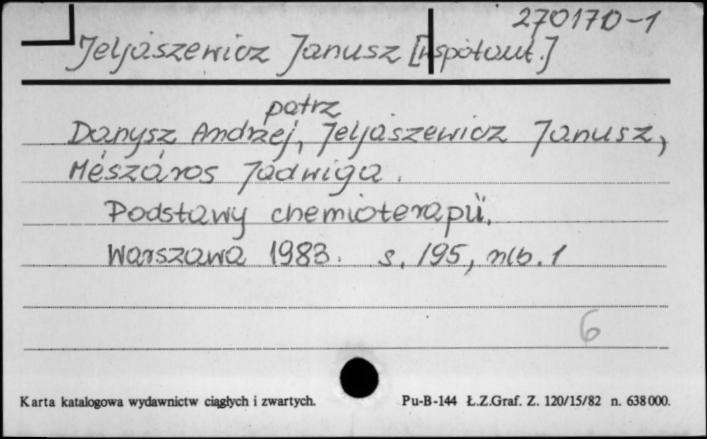 270170-1
Jeljaszewicz Janusz [współaut.]
patrz
Danysz Andrzej, Jeljaszewicz Janusz,
Mészáros Jadwiga.
Podstawy chemioterapii.
Warszawa 1983. s. 195, nlb. 1
6
Karta katalogowa wydawnictw ciągłych i zwartych. Pu-B-144 Ł.Z.Graf. Z. 120/15/82 n. 638000.